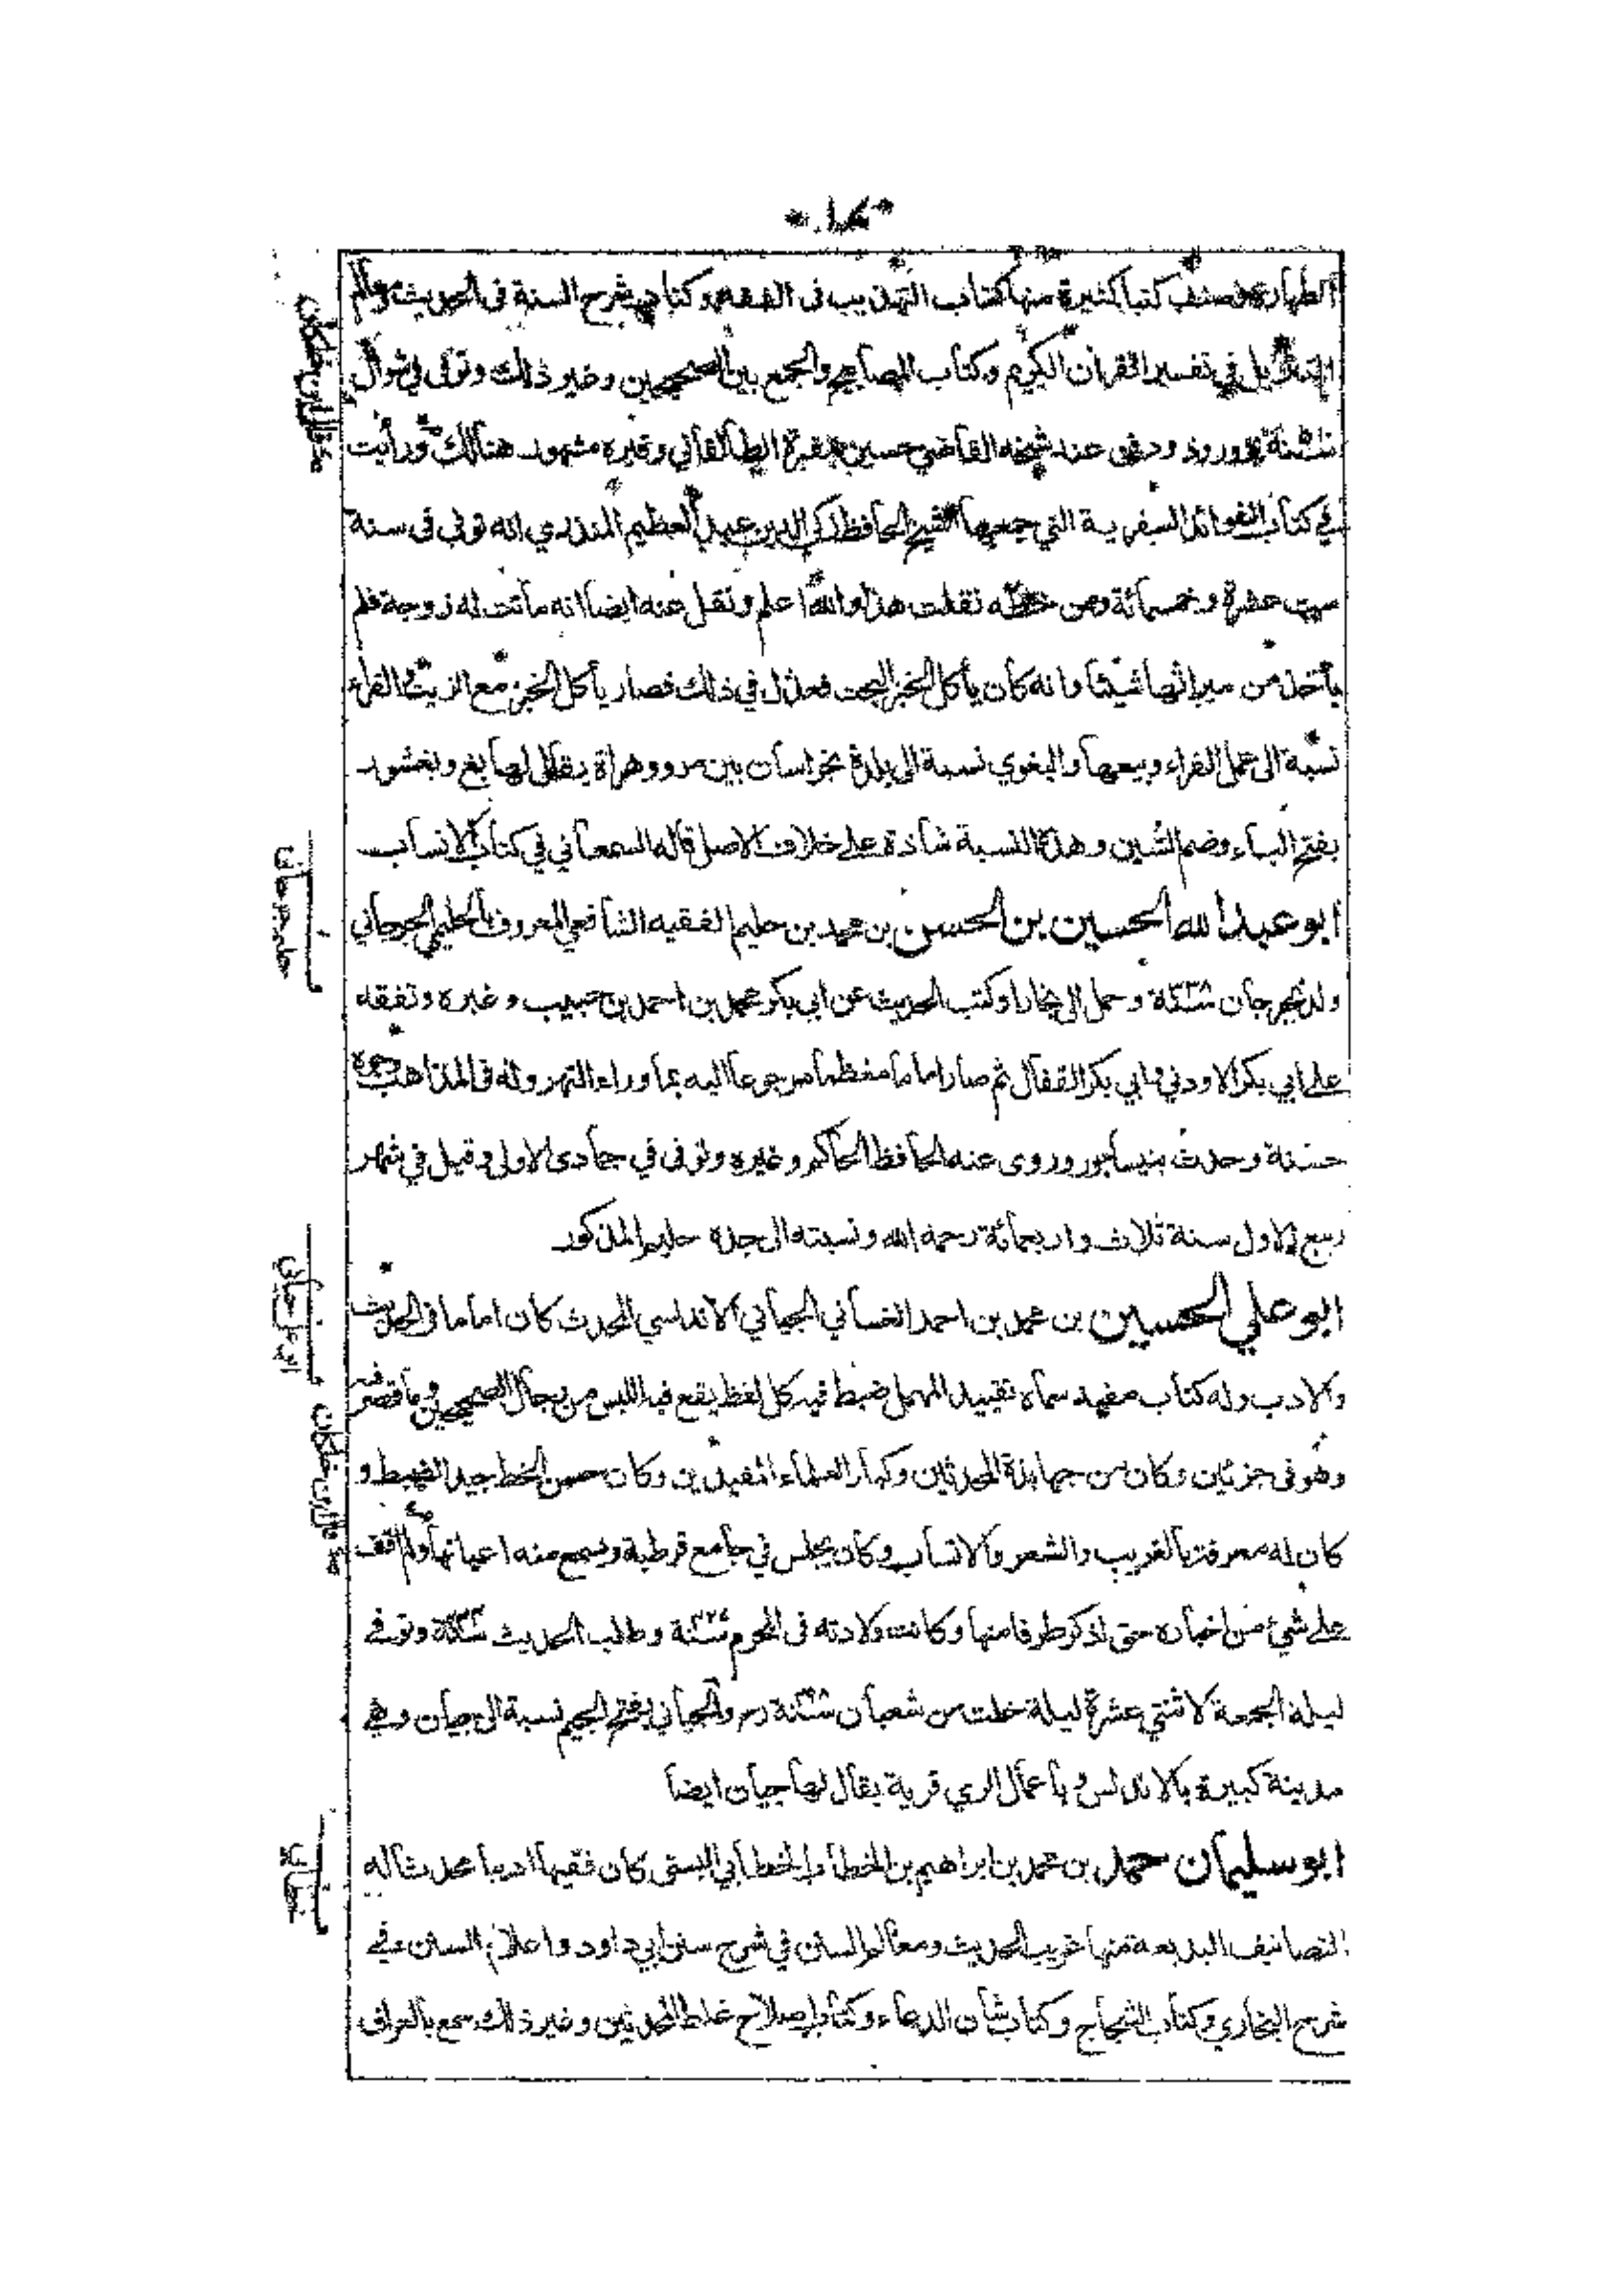 الطهارة وصنف كتبا كثيرة منها كتاب التهذيب فى الفقه وكتاب شرح السنة فى الحديث ومعالم
التنزيل في تفسير القرآن الكريم وكتاب المصابيح والجمع بين الصحيحين وغير ذلك وتوفى في شوال
بمرورود ودفن عند شيخه القاضي حسين بمقبرة الطالقاني وقبره مشهور هنالك ورأيت
في كتاب الفوائد السفرية التي جمعها الشيخ الحافظ زكي الدين عبد العظيم المنذري انه توفي فى سنة
ست عشرة وخمسمائة ومن خطه نقلت هذا والله اعلم ونقل عنه ايضا انه ماتت له زوجة فلم
يأخذ من ميراثها شيئا وانه كان يأكل الخبز البحت فعذل في ذلك فصار يأكل الخبز مع الزيت والفراء
نسبة الى عمل الفراء وبيعها والبغوي نسبة الى بلدة بخراسان بين مرو وهراة يقال لها بغ وبغشور
بفتح الباء وضم الشين وهذه النسبة شاذة على خلاف الاصل قاله السمعاني في كتاب الانساب
ابو عبد الله الحسين بن الحسن بن محمد بن حليم الفقيه الشافعي المعروف بالحليمي الجرجاني
ولد بجرجان سنة وحمل الى بخارا وكتب الحديث عن ابي بكر محمد بن احمد بن حبيب وغيره وتفقه
على ابي بكر الاودني وابي بكر القفال ثم صار اماما معظما مرجوعا اليه بما وراء النهر وله فى المذاهب وجوه
حسنة وحدث بنيسابور وروى عنه الحافظ الحاكم وغيره وتوفى في جمادى الاولى وقيل في شهر
ربيع الاول سنة ثلاث واربعمائة رحمه الله ونسبته الى جده حليم المذكور
ابو علي الحسين بن محمد بن احمد الغساني الجياني الاندلسي المحدث كان اماما فى الحديث
والادب وله كتاب مفيد سماه تقييد المهمل ضبط فيه كل لفظ يقع فيه اللبس من رجال الصحيحين وما قصر فيه
وهو فى جزئين وكان من جهابذة المحدثين وكبار العلماء المفيدين وكان حسن الخط جيد الضبط و
كان له معرفة بالغريب والشعر والانساب وكان يجلس في جامع قرطبة ويسمع منه اعيانها ولم اقف
على شيء من اخباره حتى اذكر طرفا منها وكانت ولادته فى المحرم وطلب الحديث وتوفى
ليلة الجمعة لاثنتي عشرة ليلة خلت من شعبان والجياني بفتح الجيم نسبة الى جيان وهي
مدينة كبيرة بالاندلس وباعمال الري قرية يقال لها جيان ايضا
ابو سليمان حمد بن محمد بن ابراهيم بن الخطاب الخطابي البستي كان فقيها اديبا محدثا له
التصانيف البديعة منها غريب الحديث ومعالم السنن في شرح سنن ابي داود واعلام السنن في
شرح البخاري وكتاب الشجاج وكتاب شأن الدعاء وكتاب اصلاح غلط المحدثين وغير ذلك سمع بالعراق
ابن خلكان
حليم جرجان
ابو علي جياني
ابن خلكان
خطابي